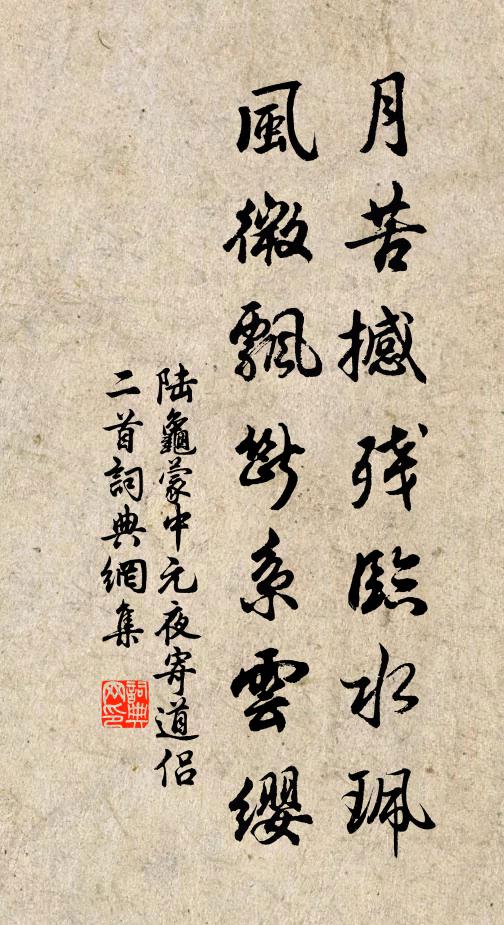 月苦撼残臨水珮
風微飄斷系雲纓
陆龜蒙中元夜寄道侣
二首詞典網集
詞典网印